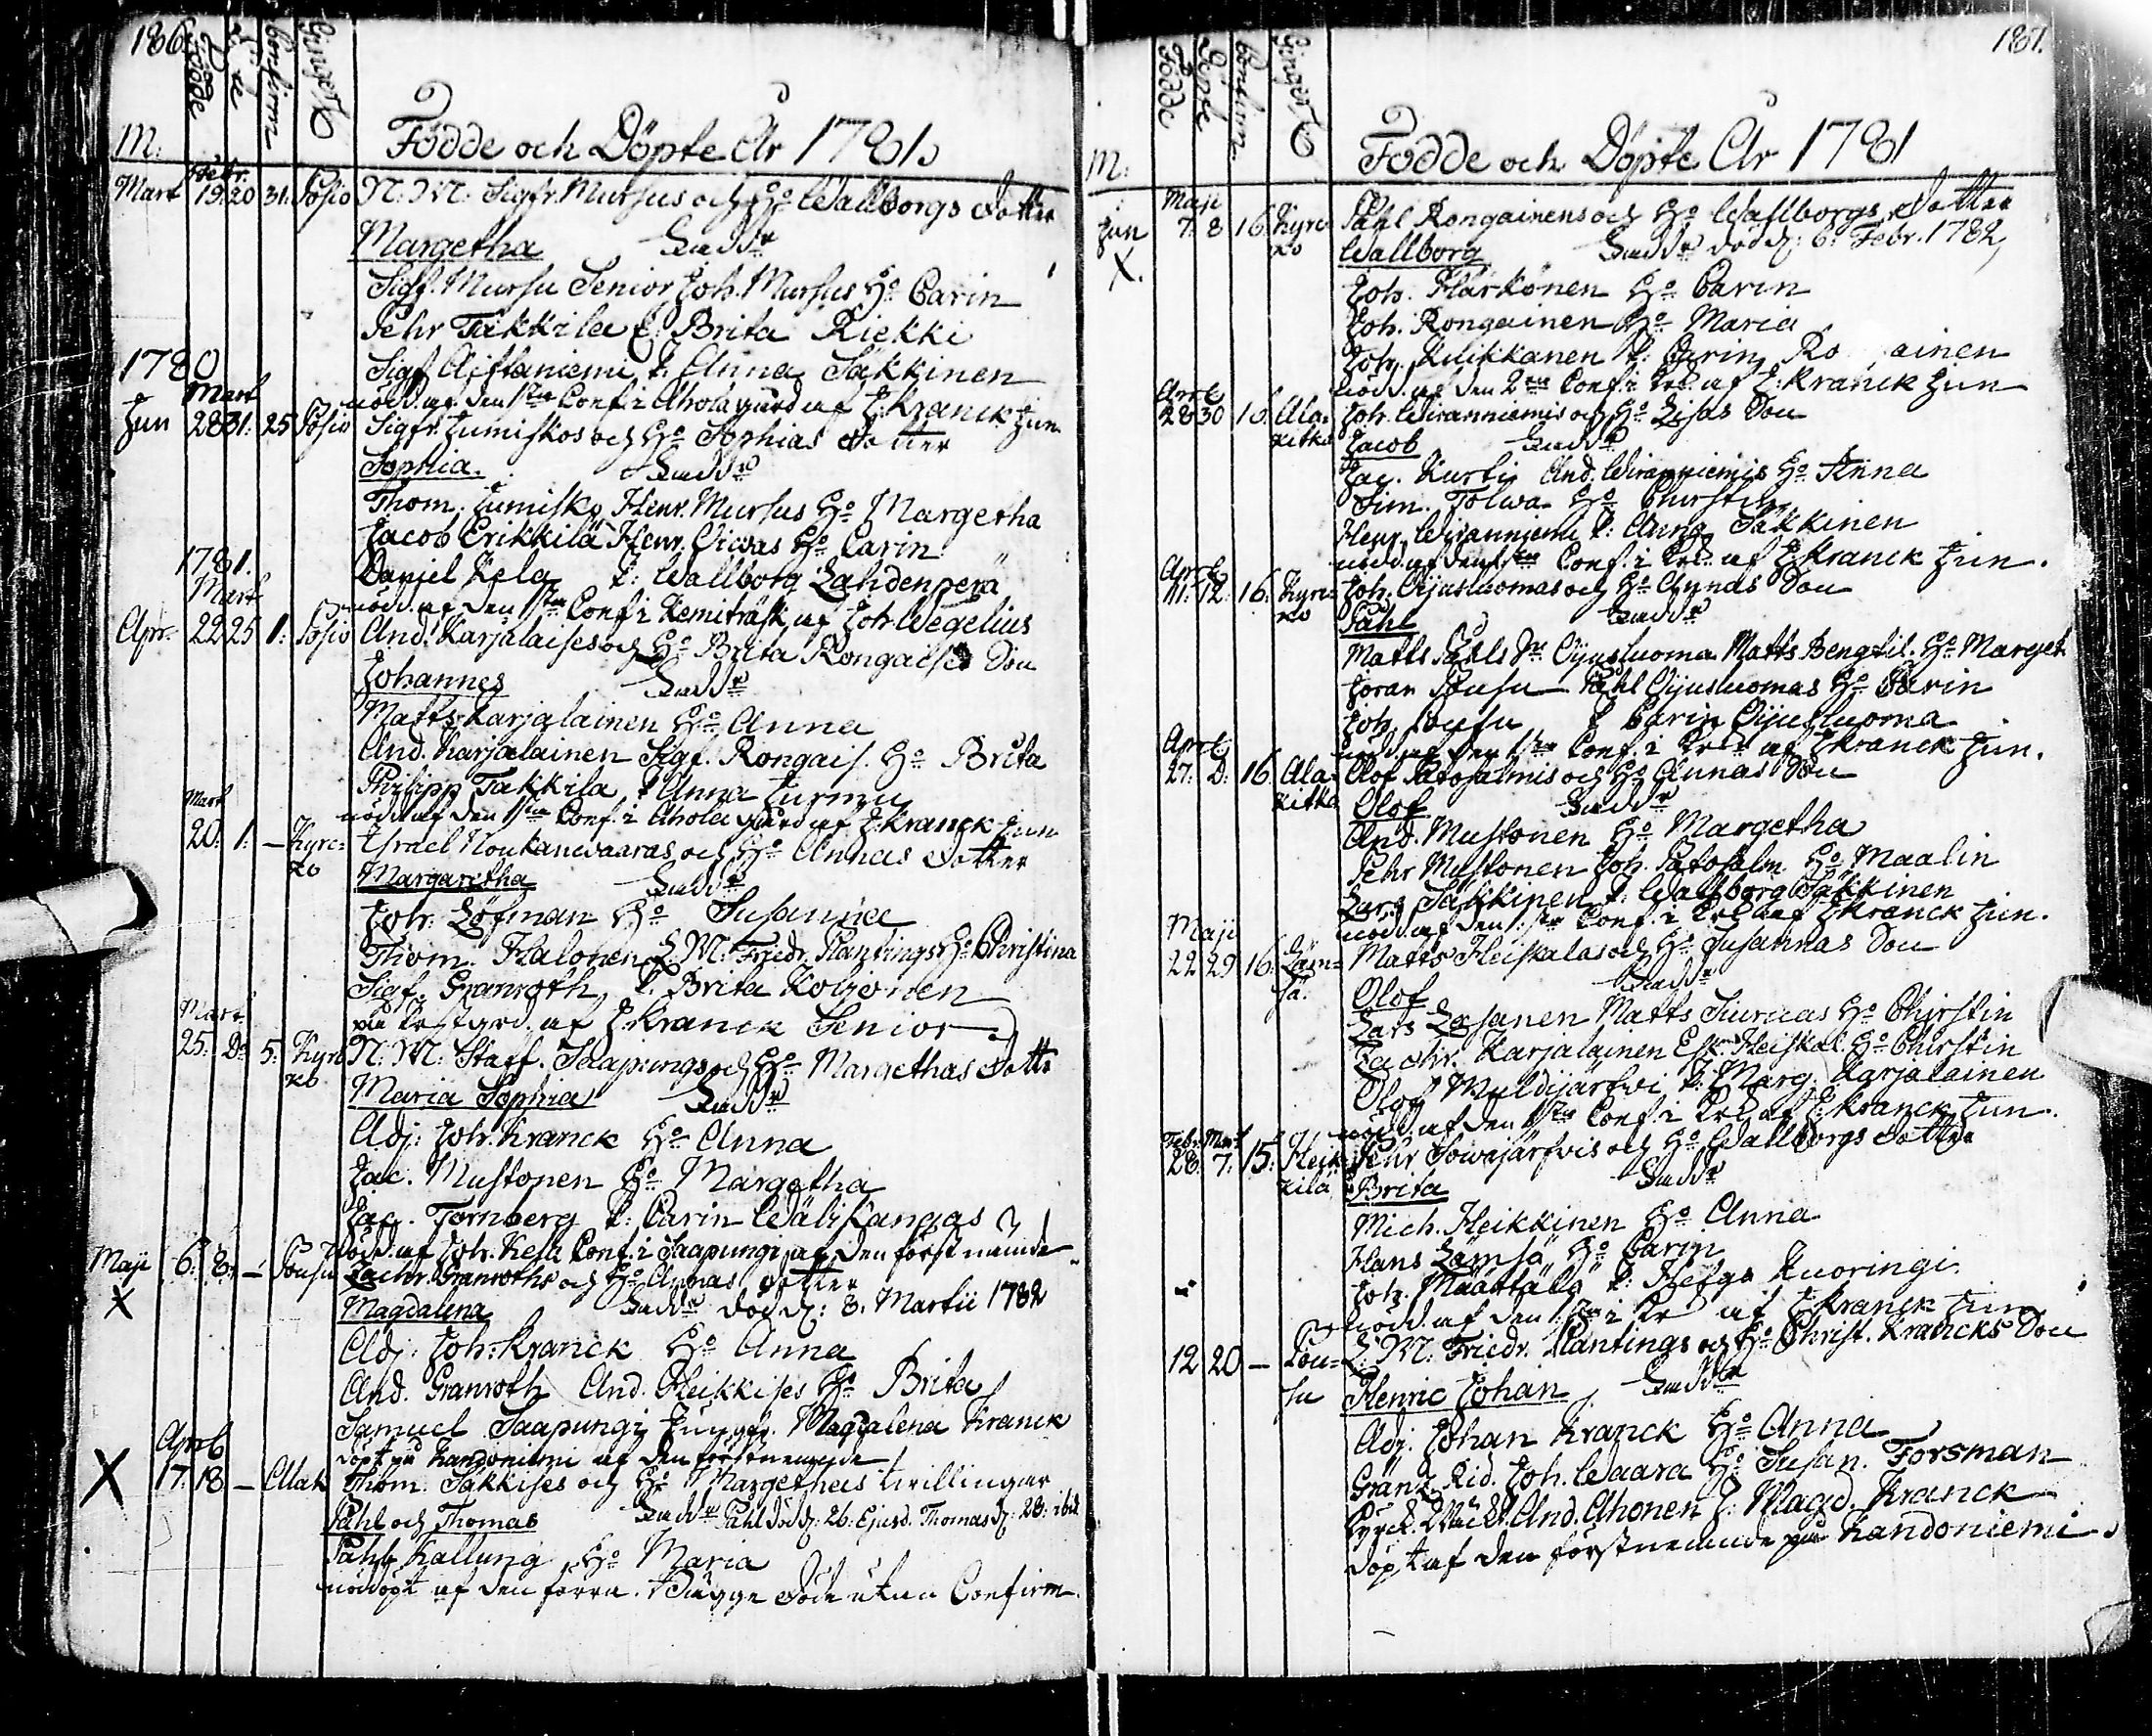 186.
Födde Döpte Confirm Ginge til
M:
Födde och Döpte År 1781.
Febr.
Mart 19. 20 31. Posio N: M: Sigfr. Mursus och Ho Wallborgs Dotter
Margetha Fadd:r
Sigf. Mursu Senior Joh. Mursus Ho Carin
Pehr Takkila P: Brita Riekki
Sigf. Aistaniemi P: Anna Säkkinen
nödd. af den 1sta Conf. i Ahola gård af J: Kranck Jun.
1780
Mart
Jun 28 31. 25 Posio Sigfr. Jumiskos och Ho Sophias Dotter
Sophia. Fadd:r
Thom. Jumisko Henr. Mursus Ho Margetha
Jacob Erikkilä Henr. Oivas Ho Carin
Daniel Kela P: Wallborg Lahdenperä
nödd. af den 1sta Conf. i Kemiträsk af Joh. Wegelius
1781.
Mart
Apr. 22 25 1. Posio And. Karjalaises och Ho Brita Rongaises Son
Johannes Fadd:r
Matts Karjalainen Ho Anna
And. Karjalainen Sigf. Rongais. Ho Brita
Philipp Takkila P Anna Jurmu
nödd. af den 1sta Conf. i Ahola gård af J: Kranck Jun
Mart
20. 1. — Kyrc=ko Israel Noukanwaaras och Ho Annas Dotter
Margaretha Fadd:r
Joh. Löfman Ho Susanna
Thom. Halonen L. M: Friedr. Plantings Ho Christina
Sigf. Granroth P. Brita Koljonen
på Prestgrd. af J: Kranck Senior
Mart
25. Do 5. Kyrc ko N: M: Staff. Saapungs och Ho Margethas Dottr
Maria Sophia Fadd:r
Adj: Joh. Kranck Ho Anna
Jac. Mustonen Ho Margetha
Jac. Törnberg P: Carin Wälikangas
nödd. af Joh. Kela Conf. i Saapungi af den först nämnde
Maji 6. 8. — Pousu Zachr. Granroths och Ho Annas Dotter
X Magdalena Fadd:r död d: 8. Martii 1782
Adj: Joh: Kranck Ho Anna
And. Granroth And. Heikkises Ho Brita
Samuel Saapungi Jungfr. Magdalena Kranck
döpt på Kandoniemi af den förstnemnde
Apr
X 17. 18 — Thom. Säkkises och Ho Margethas twillingar
Påhl och Thomas Fadd:r Påhl död d: 26. Ejusd. Thomas d: 28. ibid
Påhl Kallung Ho Maria
nöddöpt af den förra. Bägge Döde utan Confirm.
187.
Födde Döpte Confirm. Ginge til
M:
Födde och Döpte År 1781
Maji
Jun 7. 8 16. Kyrc ko Påhl Rongainens och Ho Wallborgs Dotter
X. Wallborg Fadd:r död d: 6. Febr. 1782
Joh. Härkönen Ho Carin
Joh. Rongainen Ho Maria
Joh. Kuikkanen P: Carin Ro ainen
nödd. af den 2dra Conf. i Krk. af J: Kranck Jun
Apr
28 30 16. Ala kitka Joh. Wiranniemis och Ho Lisas Son
Jacob Fadd:r
Jac. Kurti And. Wiranniemis Ho Anna
Sim. Tolwa Ho Christin
Henr. Wiranniemi P: Anna Säkkinen
nödd. af den 1sta Conf. i Krk. af J: Kranck Jun.
Apr
11. 12. 16. Kyrc=ko Joh. Oijusluomas och Ho Agnas Son
Påhl Fadd:r
Matts Påhls Sr Oijusluoma Matts Bengtil. Ho Marget.
Jöran Pousu Påhl Oijusluomas Ho Carin
Joh. Pousu P Carin Oijusluoma
nödd. af den 1sta Conf. i Krk. af J: Kranck Jun.
Apr
27. D. 16 Ala kitka Olof Patosalmis och Ho Annas Son
Olof Fadd:r
And. Mustonen Ho Margetha
Pehr Mustonen Joh. Patosalm. Ho Maalin
Lars Säkkinen P. Wallborg Säkkinen
nödd. af den 1sta Conf. i Krk. af J: Kranck Jun.
Maji
22 29 16. Läm=sä. Matts Heiskalas och Ho Susannas Son
Olof Fadd:r
Lars Lasanen Matts Siurnas Ho Chirstin
Zachr. Karjalainen Esk. Heiskal. Ho Chirstin
Olof Muldijärfwi P: Marg. Karjalainen
nödd. af den 1sta Conf. i Krk. af J: Kranck Jun.
Febr. Mart
28. 7. 15. Heik kilä Pehr Soiwajärfwis och Ho Wallborgs Dotter
Brita Fadd:r
Mich. Heikkinen Ho Anna
Hans Lämsä Ho Carin
Joh. Määttälä P: Helga Kuoringi
nödd. af den 1sta i Krk af J: Kranck Jun
12 20 — Pou=su L: M: Friedr. Plantings och Ho Christ. Krancks Son
Henric Johan Fadd:r
Adj. Johan Kranck Ho Anna
Gränz Rid. Joh. Waara Ho Susan. Forsman
Kyrck. Wäct. And. Ahonen J: Magd. Kranck
döpt af den förstnemnde på Kandoniemi.